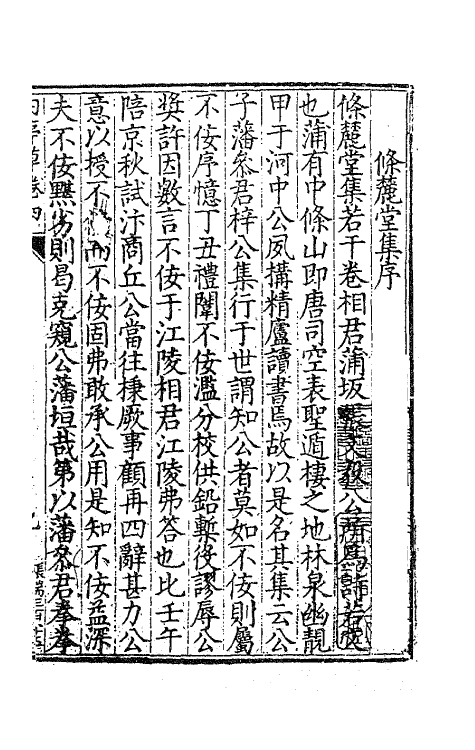 條麓堂集序
條麓堂集若干卷相君蒲坂張文毅公所爲詩若文
也蒲有中條山即唐司空表聖遁棲之地林泉幽靚
甲于河中公夙搆精廬讀書焉故以是名其集云公
子藩叅君梓公集行于世謂知公者莫如不佞則屬
不佞序憶丁丑禮闈不佞濫分校供鉛槧役謬辱公
奬許因數言不佞于江陵相君江陵弗答也比壬午
陪京秋試汴商丘公當往秉厥事顧再四辭甚力公
意以授不佞而不佞固弗敢承公用是知不佞益深
夫不佞黭劣則曷克窺公藩垣哉第以藩叅君拳拳